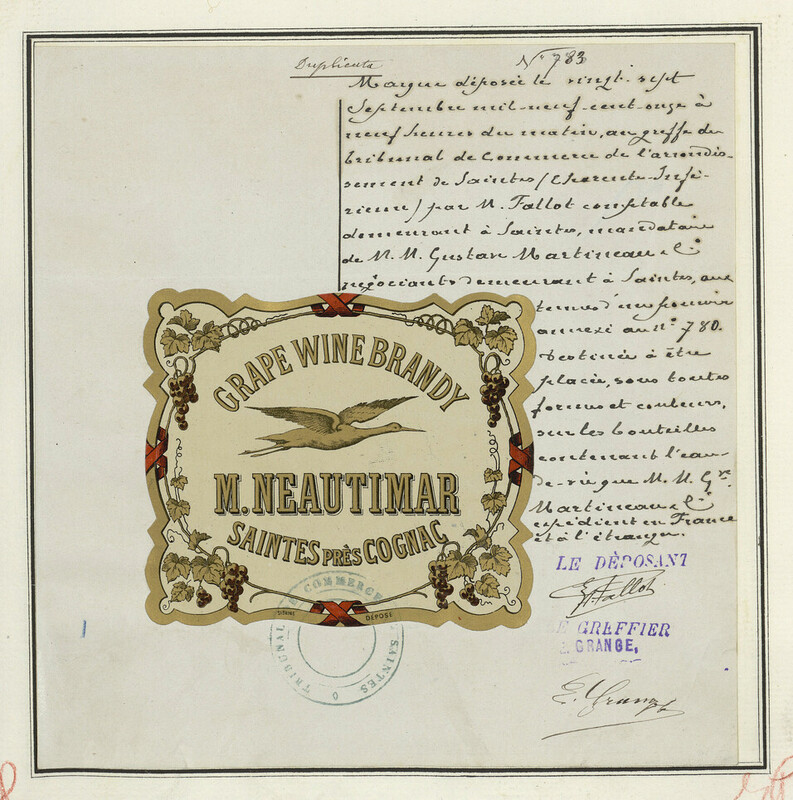 Duplicata
N° 783
Marque déposée le vingt-sept
Septembre mil-neuf-cent-onze à
neuf heures du matin, au greffe du
tribunal de Commerce de l'arrondis-
sement de Saintes (Charente-Infé-
rieure) par M. Fallot comptable
demeurant à Saintes, mandataire
de M.M. Gustave Martineau & Cie
négociants demeurant à Saintes, aux
termes d'un pouvoir
annexé au n° 780.
Destinée à être
placée, sous toutes
formes et couleurs,
sur les bouteilles
contenant l'eau-
de-vie que M.M. Gve
Martineau & Cie
expédient en France
et à l'étranger.
GRAPE WINE BRANDY
M. NEAUTIMAR
SAINTES PRÈS COGNAC
DÉPOSÉ
TRIBUNAL DE COMMERCE SAINTES
LE DÉPOSANT
Fallot
E GREFFIER
GRANGE,
E. Grange